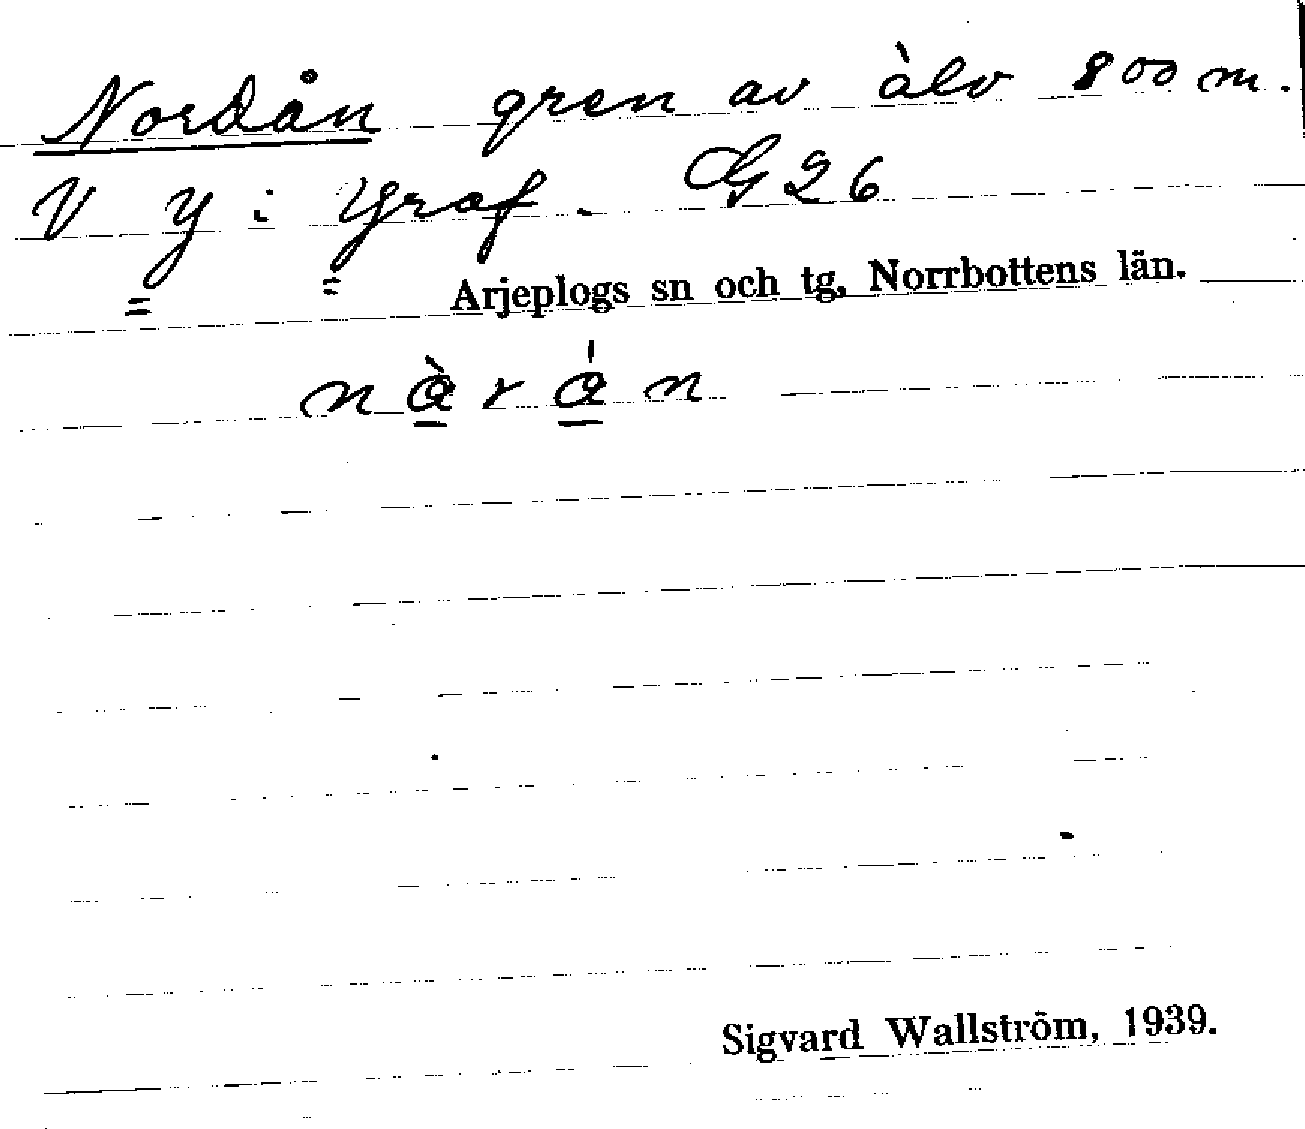 Nordån gren av älv 800 m.
V y i Graf. G 26
Arjeplogs sn och tg, Norrbottens län.
nò̱rá̱n
Sigvard Wallström, 1939.